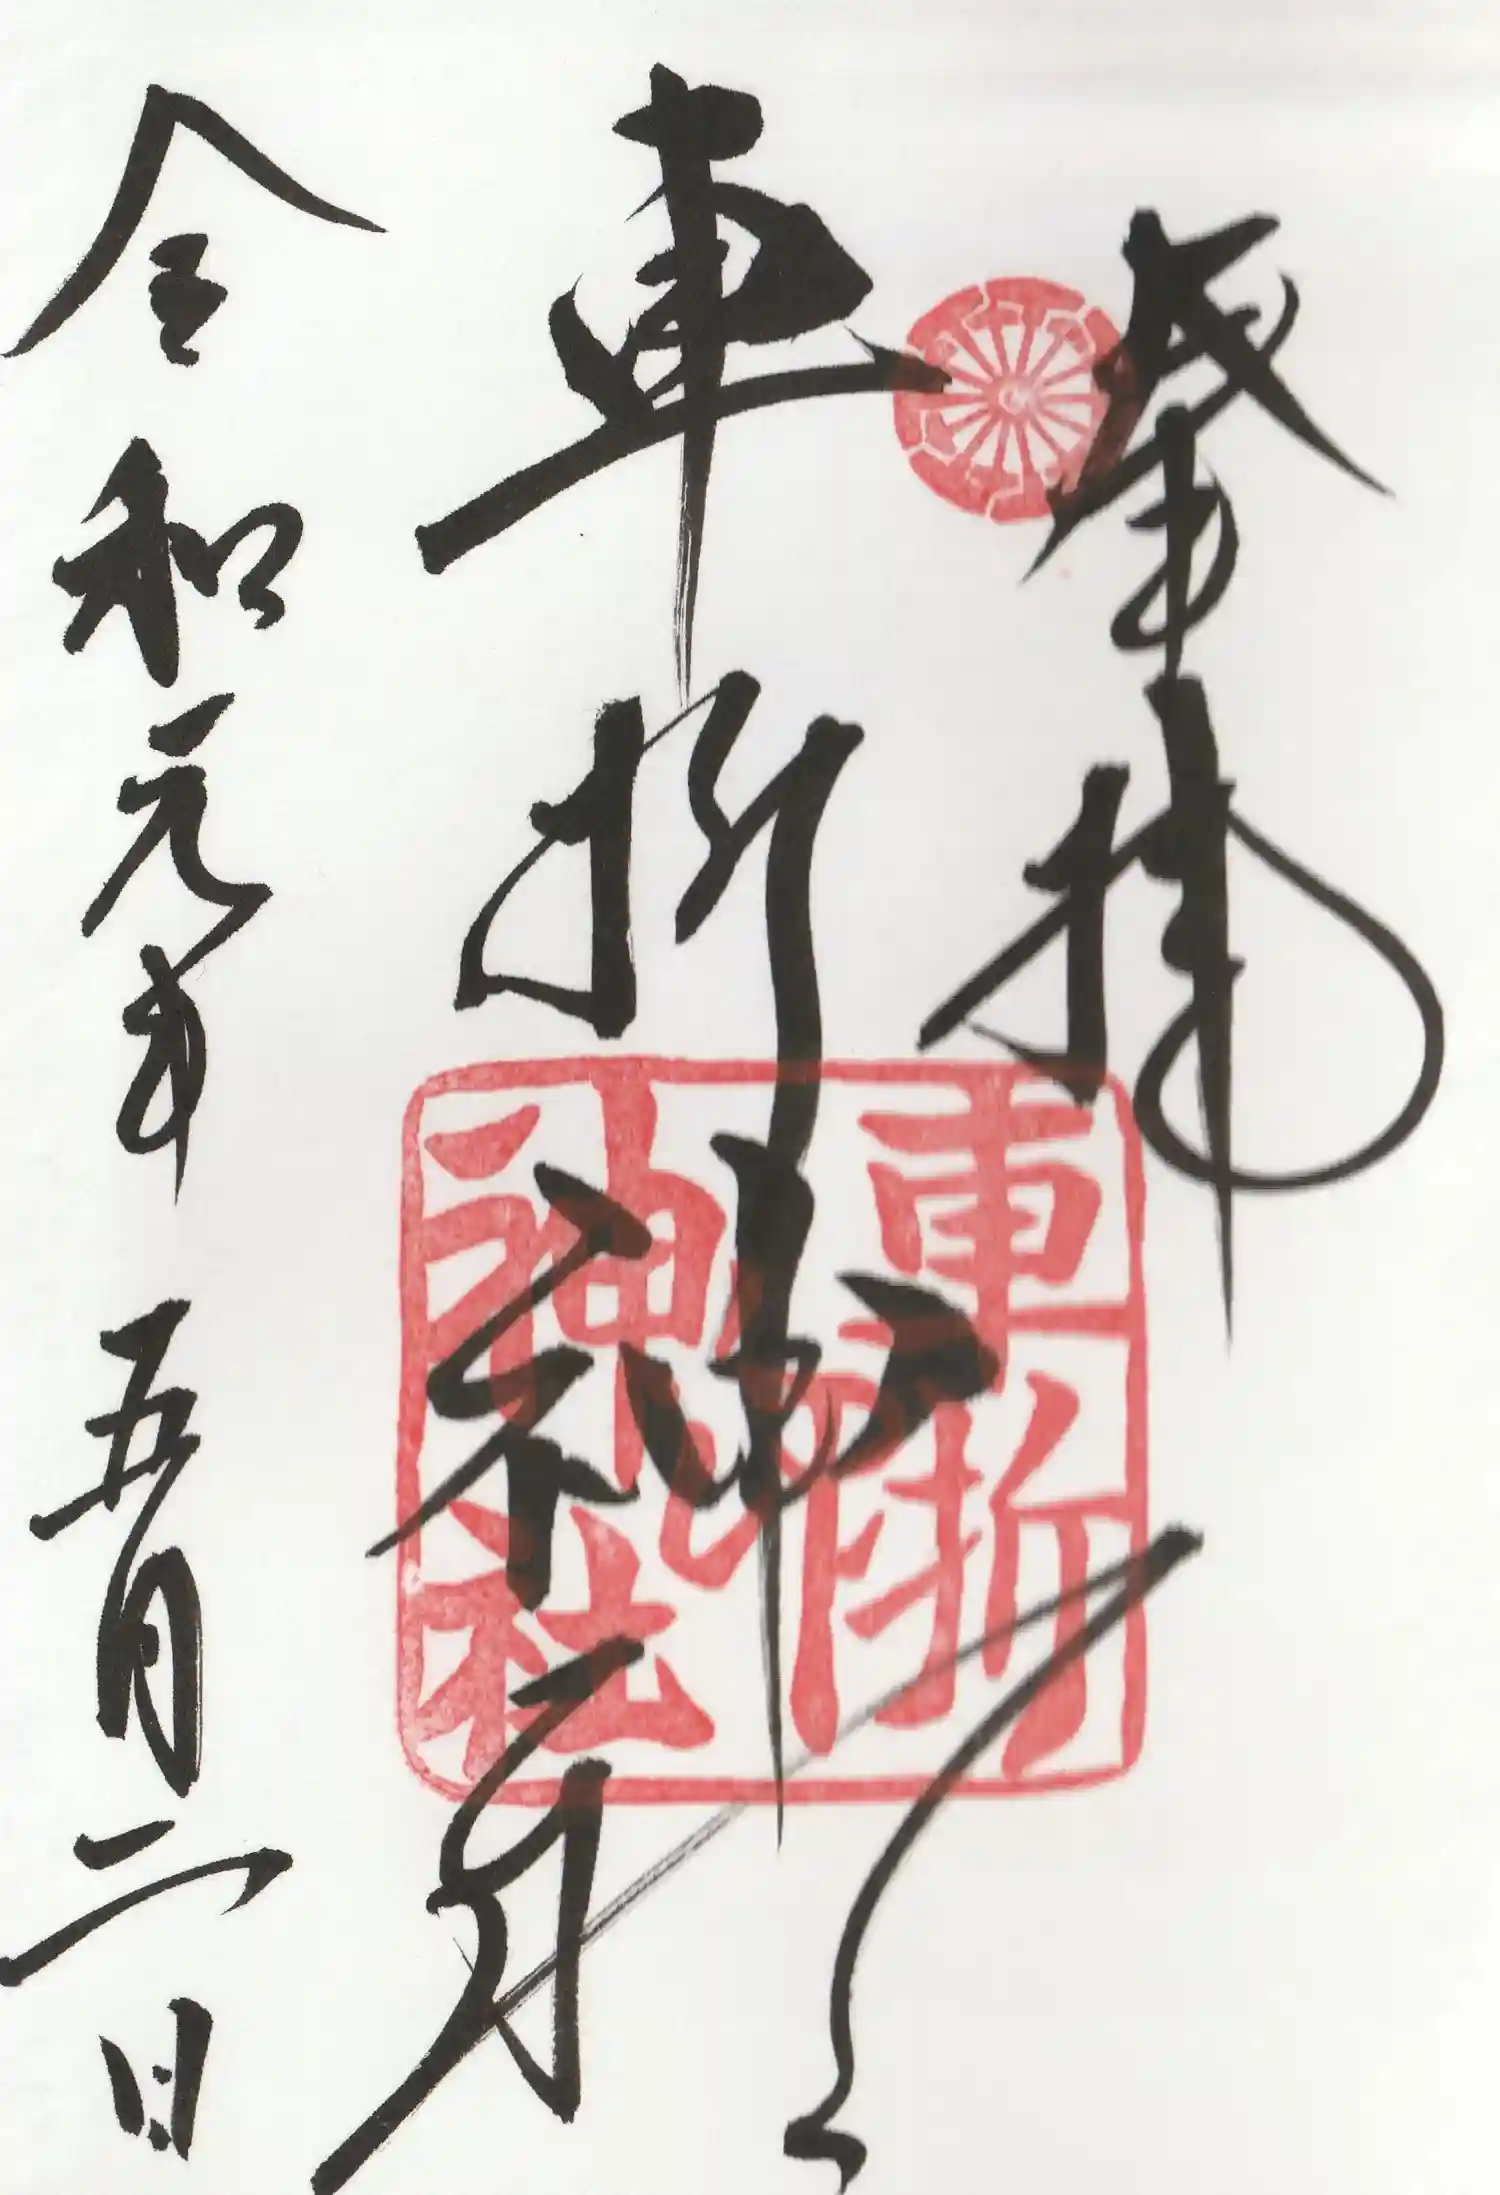 奉拝
車折神社
令和元年 五月二日
車折
神社
印